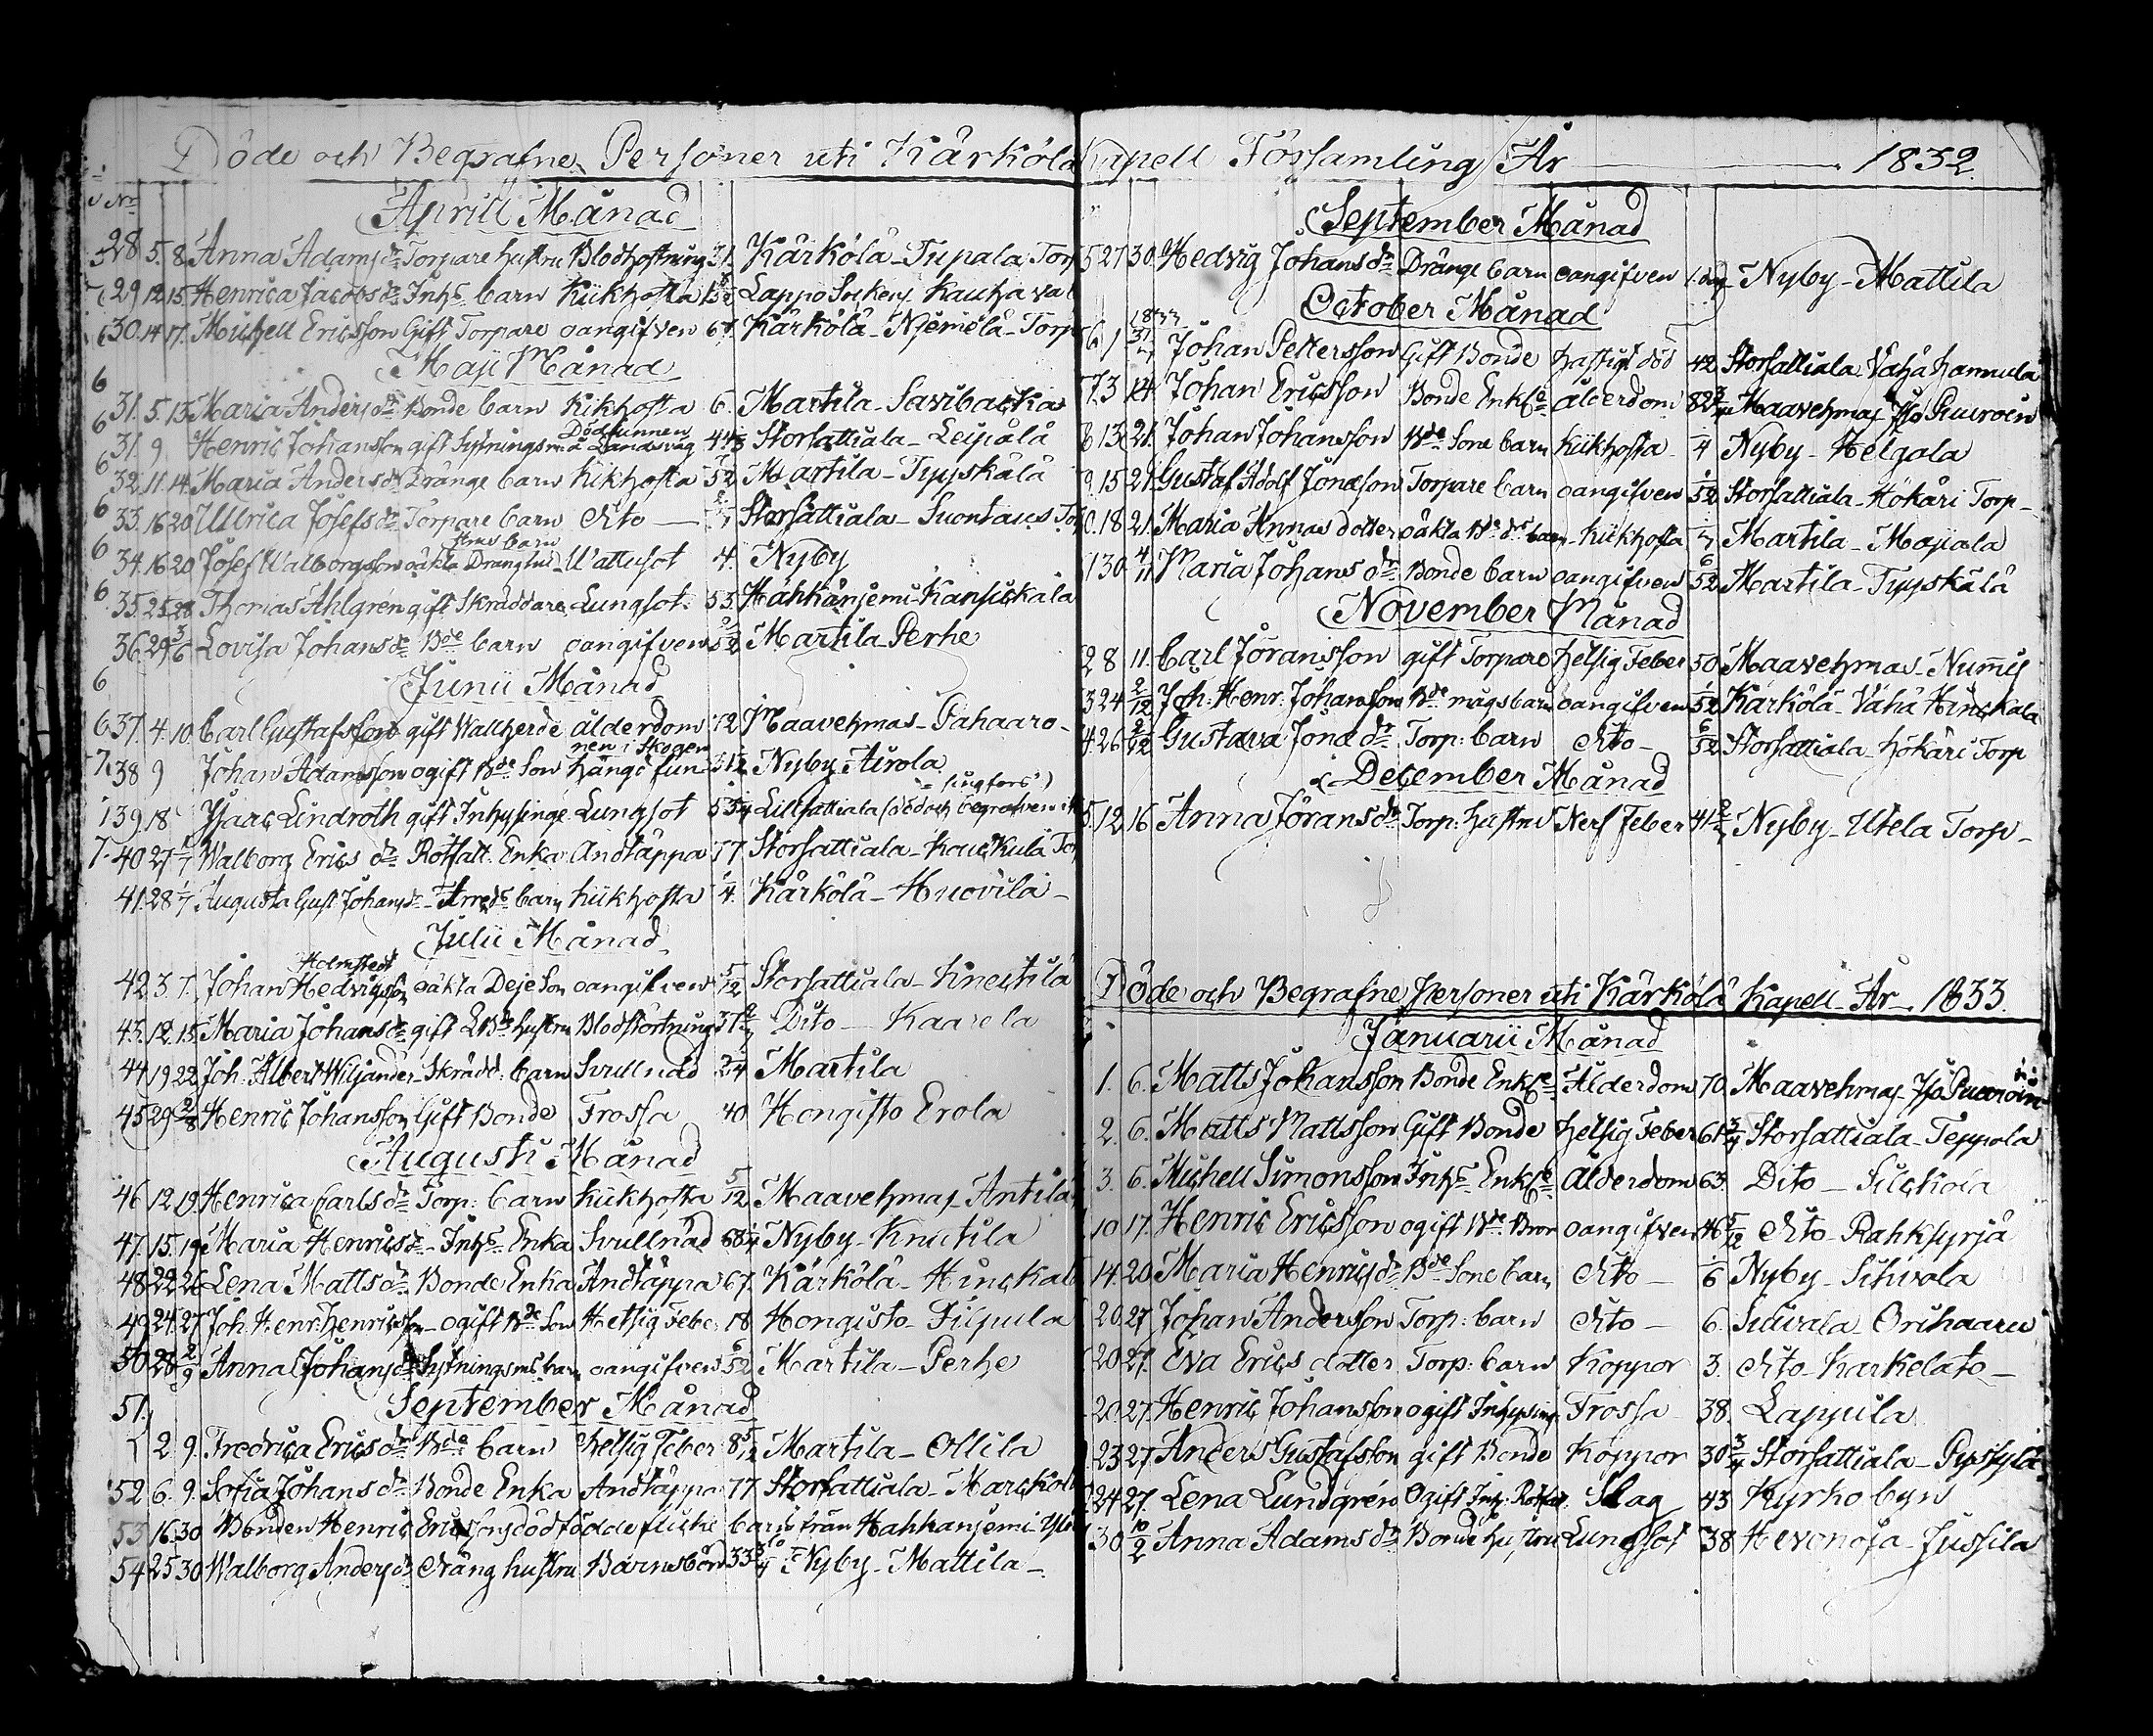 Döde och Begrafne Personer uti Kärkölä Kapell Församling År 1832
No
Aprill Månad
28 5. 8. Anna Adams dr Torpare hustru Blodhostning Kärkölä - Tupala Torp
29 12 15 Henrica Jacobs dr Inhs barn Kikhosta Lappo Sockn
30. 14 17. Michell Ericsson Gift Torpare oangifven 67. Kärkölä - Njemelä - Torp
Maji Månad
31. 5. 13 Maria Anders dr Bonde barn Kikhosta 6. Martila - Savibacka
31. 9 Henric Johansson gift Sytningsm Dödfunnen å Landsväg Storsattiala - Leipälä
32. 11. 14. Maria Anders dr Dränge barn Kikhosta Martila - Tyyskälä
33. 16 20 Ulrica Josefs dr Torpare barn dito Storsattiala - Suontaus
34. 16 20 Josef Walborgson oäkta Wattusot 4. Nyby
35. 25 28 Thomas Ahlgren gift Skräddare Lungsot. 53. Hähkänjemi - Kansickala
36. 29 3/6 Lovisa Johans dr Bde barn oangifven Martila Perhe
Junii Månad
37. 4. 10. Carl Gustafsson gift Wallherde ålderdom 72 Maavehmas - Pahaaro -
38 9 Johan Adamsson ogift Bde Son hängd funnen i Skogen Nyby Airola
39 18 Isaac Lindroth gift Inhysinge Lungsot Lillsattiala (död och begrafven i Helsingfors)
40 27 1/7 Walborg Erics dr Rotfatt. Enka Andtäppa 77 Storsattiala - Kauckula
41. 28 1/7 Augusta Gust Johans dr Arred. barn kikhosta 1/4. Kärkölä - Huovila -
Julii Månad
42. 3. 7. Johan Hedvigsson Holmstedt oäkta Deje Son oangifven 5/12 Storsattiala - Knectilä
43. 12. 15. Maria Johans dr gift Bde hustru Blodstörtning Dito - Kaarela
44 19 22 Joh. Albert Wiljander - Skrädd: barn Svullnad 2/4 Martila
45 29 2/8 Henric Johansson Gift Bonde Frossa 40 Hongisto Erola
Augusti Månad
46 12 19. Henrica Carls dr Torp: barn kikhosta 5/12 Maavehmas - Antila
47. 15. 19 Maria Henrics dr - Inhs Enka Svullnad Nyby - Knutila
48 22 26 Lena Matts dr Bonde Enka Andtäppa 67. Kärkölä - Hinckala
49 24. 27 Joh. Henr: Henricsson - ogift Bde Son Hetsig Feber 18 Hongisto - Filpula
50 28 2/9 Anna Johans dr Sytningsms barn oangifven Martila - Perhe
September Månad
51. 2. 9. Fredrica Erics dr Bde barn Hetsig Feber 8 5/12 Martila - Ollila
52 6. 9. Sofia Johans dr Bonde Enka Andtäppa 77. Storsattiala - Marckola
53 16. 30 Bonden Henric Ericssons dödfödde flicke barn från Hähkänjemi
54 25 30 Walborg Anders dr dräng hustru Barnsbörd Nyby - Mattila -
September Månad
5 27 30. Hedvig Johans dr Dränge barn oangifven 1. dag - Nyby - Mattila
October Månad
6 1 Johan Pettersson Gift Bonde hastigt död 42 Storsattiala - Vähä hannula
7. 3 14 Johan Ericsson Bonde Enkl. ålderdom Maavehmas Iso Puuroin
8 13 21. Johan Johansson Bde Sone barn kikhosta - Nyby - Helgola
9. 15 21. Gustaf Adolf Jonæson Torpare barn oangifven Storsattiala - Hökäri Torp -
0. 18 21. Maria Annas dotter oäkta barn - kikhosta Martila - Majiala
1 30 4/11 Maria Johans dr Bonde barn oangifven 6/52 Martila - Tyyskälä
November Månad
2 8 11. Carl Jöransson gift Torpare Hetsig Feber 50 Maavehmas - Nummis
3 24 2/12 Joh. Henr: Johansson Bde mågs barn oangifven Kärkölä - Vähä Hinckala
4 26 2/12 Gustava Jonæ dr Torp: barn dito - 6/52 Storsattiala - hökäri Torp
December Månad
5. 12 16 Anna Jörans dr Torp: hustru Nerf Feber Nyby - Utela Torp -
Döde och Begrafne Personer uti Kärkölä Kapell - År - 1833.
Januarii Månad
1. 6. Matts Johansson Bonde Enkl. Ålderdom 70. Maavehmas - Iso Puuroin
2. 6. Matts Mattsson Gift Bonde Hetsig Feber 61 3/4 Storsattiala - Teppola
3. 6. Michell Simonsson Inhs Enkl. Ålderdom 63. Dito - Silckoia
10 17. Henric Ericsson ogift Bde Bror oangifven 46 5/12 dito - Rahksyrjä
14. 20. Maria Henrics dr Bde Sone barn dito - Nyby - Sihvola
20. 27 Johan Andersson Torp: barn dito - 6. Siuvala - Orihaaru
20 27. Eva Erics dotter Torp: barn Koppor 3. dito - Karkelato -
20 27. Henric Johansson ogift Inhysing Frossa 38. Lappila
23 27 Anders Gustafsson gift Bonde Koppor 30 3/4 Storsattiala - Pyssylä
24 27. Lena Lundgren Ogift Slag 43 Kyrkobyn
30 10/2 Anna Adams dr Bonde hustru Lungsot 38 Hevonoja - Jussila